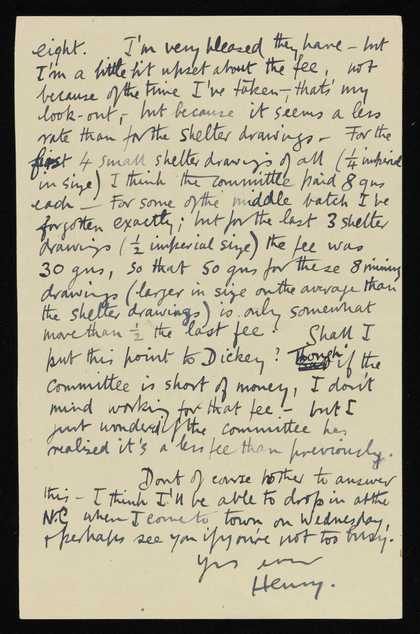 eight. I'm very pleased they have – but
I'm a little bit upset about the fee, not
because of the time I've taken –, that's my
look-out, but because it seems a less
rate than for the shelter drawings – For the
first 4 small shelter drawings of all (¼ imperial
in size) I think the committee paid 8 gns
each – For some of the middle batch I've
forgotten exactly; but for the last 3 shelter
drawings (½ imperial size) the fee was
30 gns, so that 50 gns for these 8 mining
drawings (larger in size on the average than
the shelter drawings) is only somewhat
more than ½ the last fee. Shall I
put this point to Dickey? Though if the
committee is short of money, I don't
mind working for that fee – but I
just wondered if the committee has
realised it's a less fee than previously.
Dont of course bother to answer
this – I think I'll be able to drop in at the
N.G. when I come to town on Wednesday,
& perhaps see you if you're not too busy.
Yrs ever
Henry.